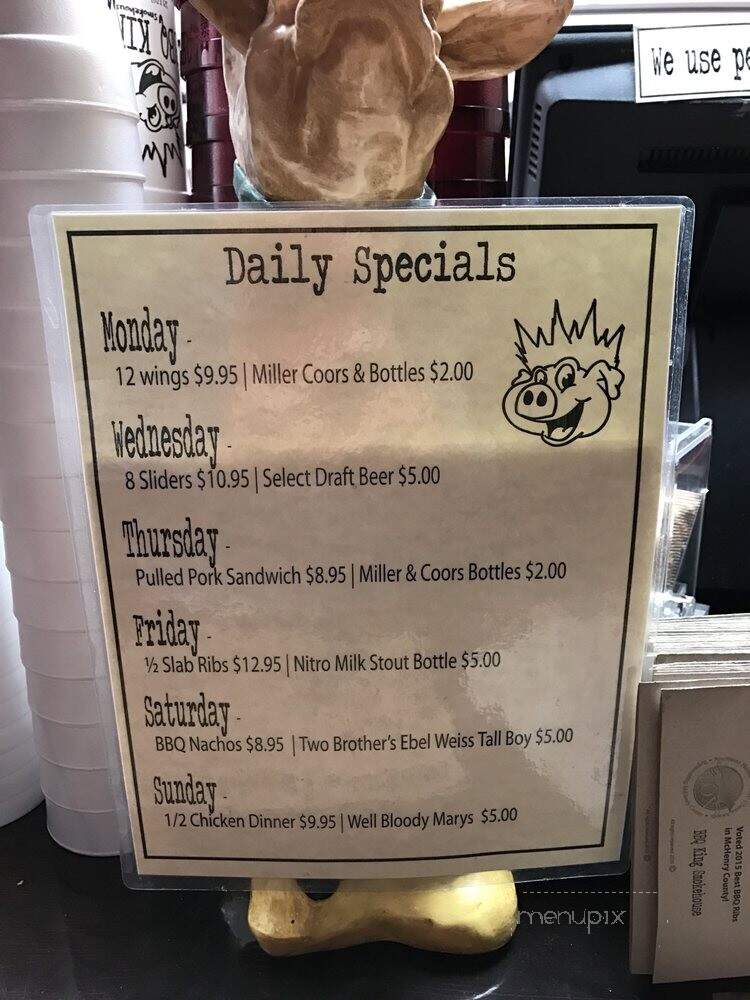 We use pe
Daily Specials
Monday -
12 wings $9.95 | Miller Coors & Bottles $2.00
Wednesday -
8 Sliders $10.95 | Select Draft Beer $5.00
Thursday -
Pulled Pork Sandwich $8.95 | Miller & Coors Bottles $2.00
Friday -
½ Slab Ribs $12.95 | Nitro Milk Stout Bottle $5.00
Saturday -
BBQ Nachos $8.95 | Two Brother's Ebel Weiss Tall Boy $5.00
Sunday -
1/2 Chicken Dinner $9.95 | Well Bloody Marys $5.00
Voted 2015 Best BBQ Ribs
in McHenry County!
BBQ King Smokehouse
menupix